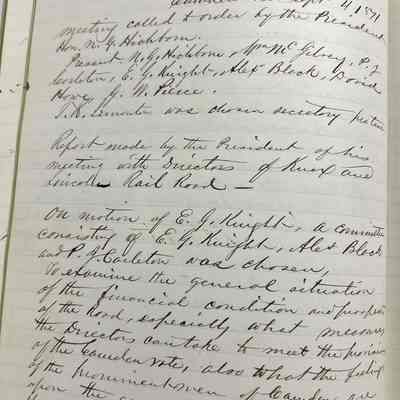 Sept 4 1871
meeting called to order by the President
Hon. N. G. Hichborn.
Present N. G. Hichborn, Wm Mc Gilvery, P. J.
Carleton, E. G. Knight, Alex Black, David
Howe, J. W. Pierce.
was chosen secretary protem
Report made by the President of his
meeting with Directors of Knox and
Lincoln Rail Road —
On motion of E. G. Knight, a committee
consisting of E. G. Knight, Alex Black
and P. J. Carleton was chosen,
To examine the general situation
of the financial condition and prospects
of the Road, especially what measures
the Directors can take to meet the provisions
of the Camden vote, also what the feeling
of the prominent men of Camden are
upon the